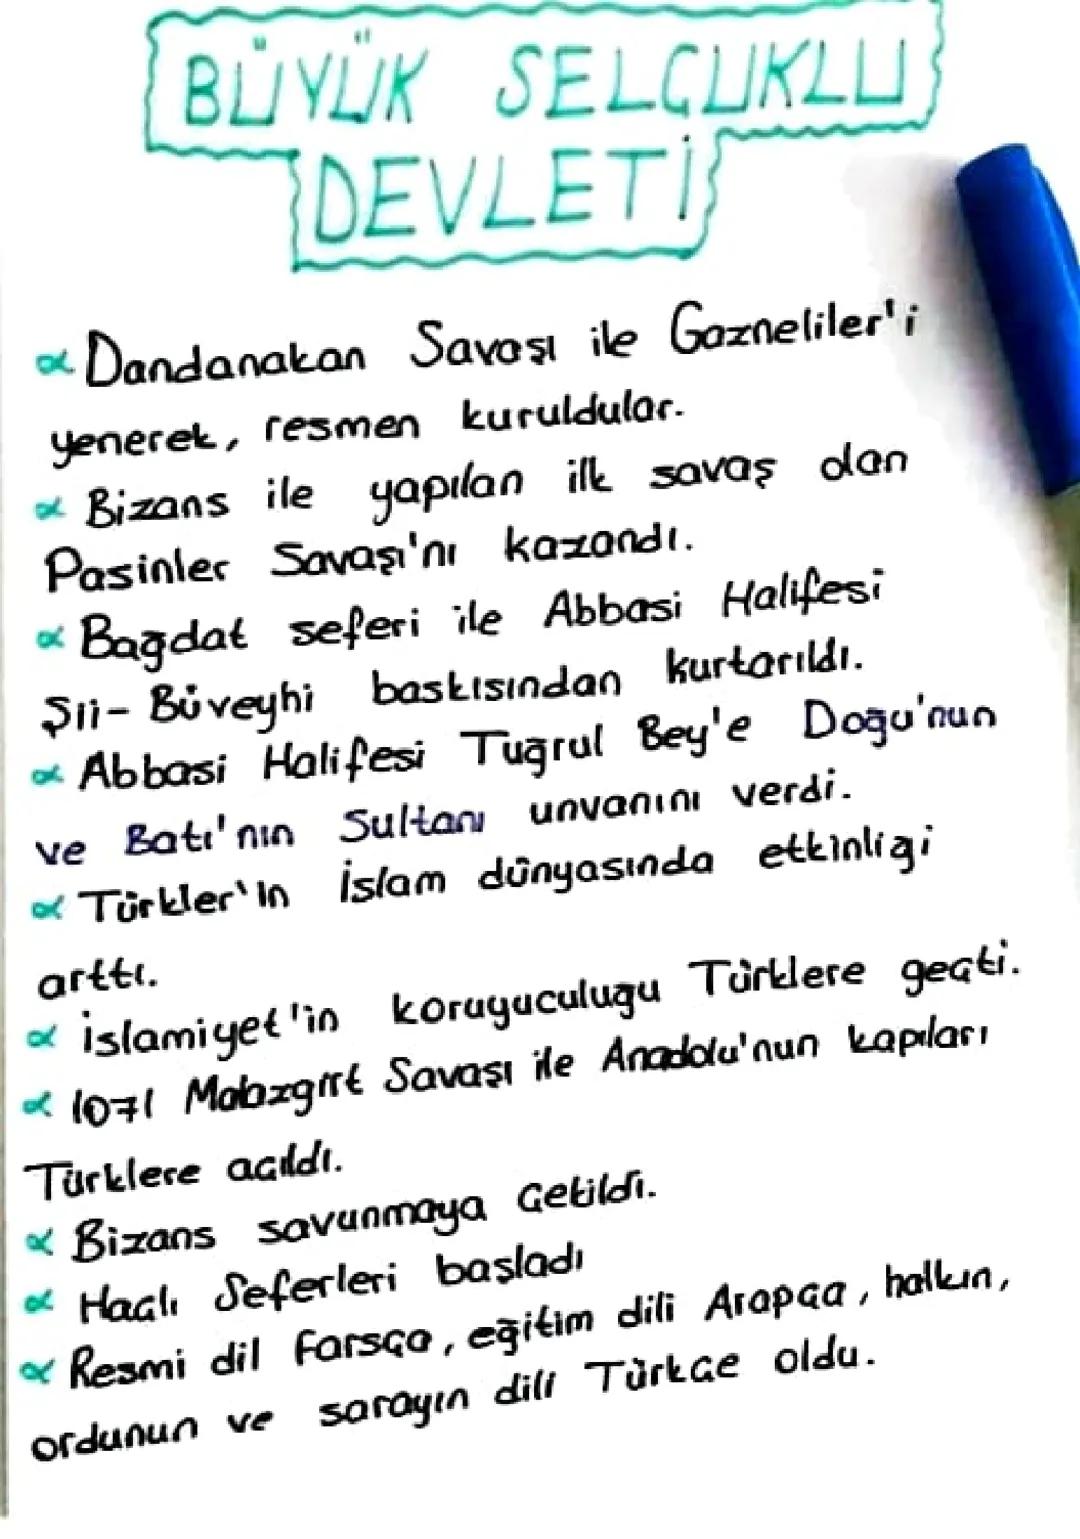 BÜYÜK SELÇUKLU
DEVLETİ
Dandanakan Savaşı ile Gazneliler'i
yenerek, resmen kuruldular.
Bizans ile yapılan ilk savaş olan
Pasinler Savaşı'nı kazandı.
Bağdat seferi ile Abbasi Halifesi
Şii-Büveyhi baskısından kurtarıldı.
Abbasi Halifesi Tuğrul Bey'e Doğu'nun
ve Batı'nın Sultanı unvanını verdi.
Türkler'in İslam dünyasında etkinliği
arttı.
İslamiyet'in koruyuculuğu Türklere geçti.
1071 Malazgirt Savaşı ile Anadolu'nun kapıları
Türklere açıldı.
Bizans savunmaya çekildi.
Haçlı Seferleri başladı
Resmi dil Farsça, eğitim dili Arapça, halkın,
ordunun ve sarayın dili Türkçe oldu.